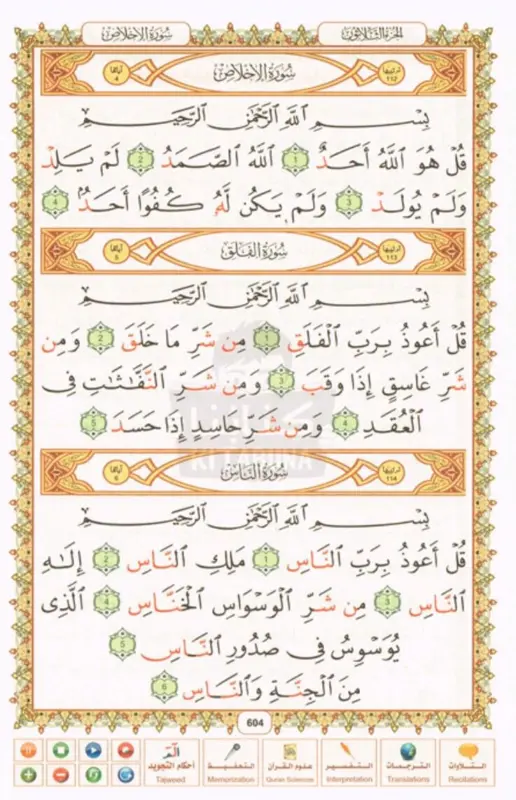 سورة الإخلاص
الجزء الثلاثون
ترتيبها 112
سُورَةُ الإِخْلَاصِ
آياتها 4
بِسْمِ ٱللَّهِ ٱلرَّحْمَٰنِ ٱلرَّحِيمِ
قُلْ هُوَ ٱللَّهُ أَحَدٌ ١ ٱللَّهُ ٱلصَّمَدُ ٢ لَمْ يَلِدْ
وَلَمْ يُولَدْ ٣ وَلَمْ يَكُن لَّهُۥ كُفُوًا أَحَدٌۢ ٤
ترتيبها 113
سُورَةُ الفَلَقِ
آياتها 5
بِسْمِ ٱللَّهِ ٱلرَّحْمَٰنِ ٱلرَّحِيمِ
قُلْ أَعُوذُ بِرَبِّ ٱلْفَلَقِ ١ مِن شَرِّ مَا خَلَقَ ٢ وَمِن
شَرِّ غَاسِقٍ إِذَا وَقَبَ ٣ وَمِن شَرِّ ٱلنَّفَّٰثَٰتِ فِى
ٱلْعُقَدِ ٤ وَمِن شَرِّ حَاسِدٍ إِذَا حَسَدَ ٥
KITABUNA
ترتيبها 114
سُورَةُ النَّاسِ
آياتها 6
بِسْمِ ٱللَّهِ ٱلرَّحْمَٰنِ ٱلرَّحِيمِ
قُلْ أَعُوذُ بِرَبِّ ٱلنَّاسِ ١ مَلِكِ ٱلنَّاسِ ٢ إِلَٰهِ
ٱلنَّاسِ ٣ مِن شَرِّ ٱلْوَسْوَاسِ ٱلْخَنَّاسِ ٤ ٱلَّذِى
يُوَسْوِسُ فِى صُدُورِ ٱلنَّاسِ ٥
مِنَ ٱلْجِنَّةِ وَٱلنَّاسِ ٦
604
التلاوات
Recitations
الترجمات
Translations
التفسير
Interpretation
علوم القرآن
Quran Sciences
التحفيظ
Memorization
أحكام التجويد
Tajweed